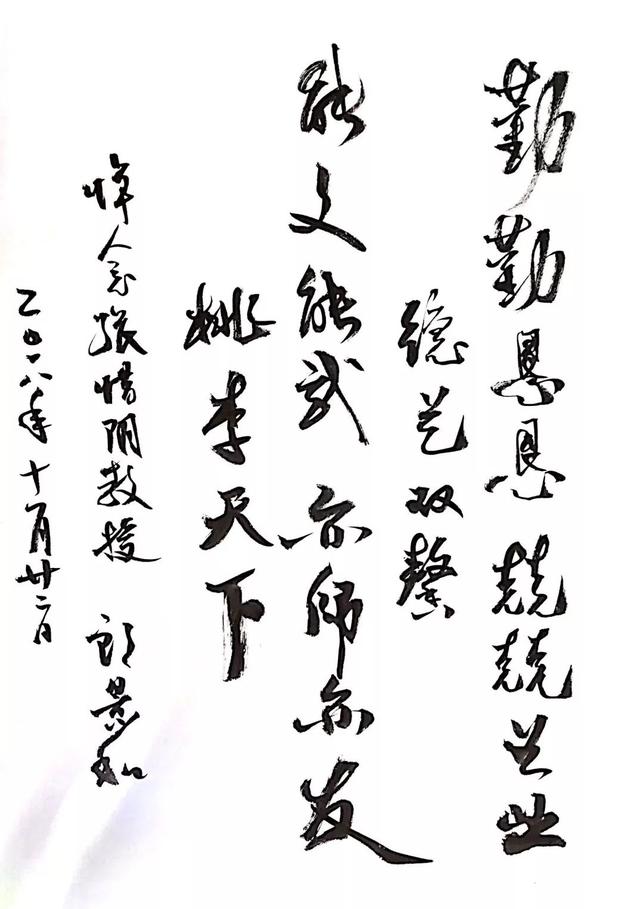 勤勤恳恳 兢兢业业
德艺双馨
能文能武 亦师亦友
桃李天下
悼念张惜阴教授 郎景和
二〇一八年十月廿二日